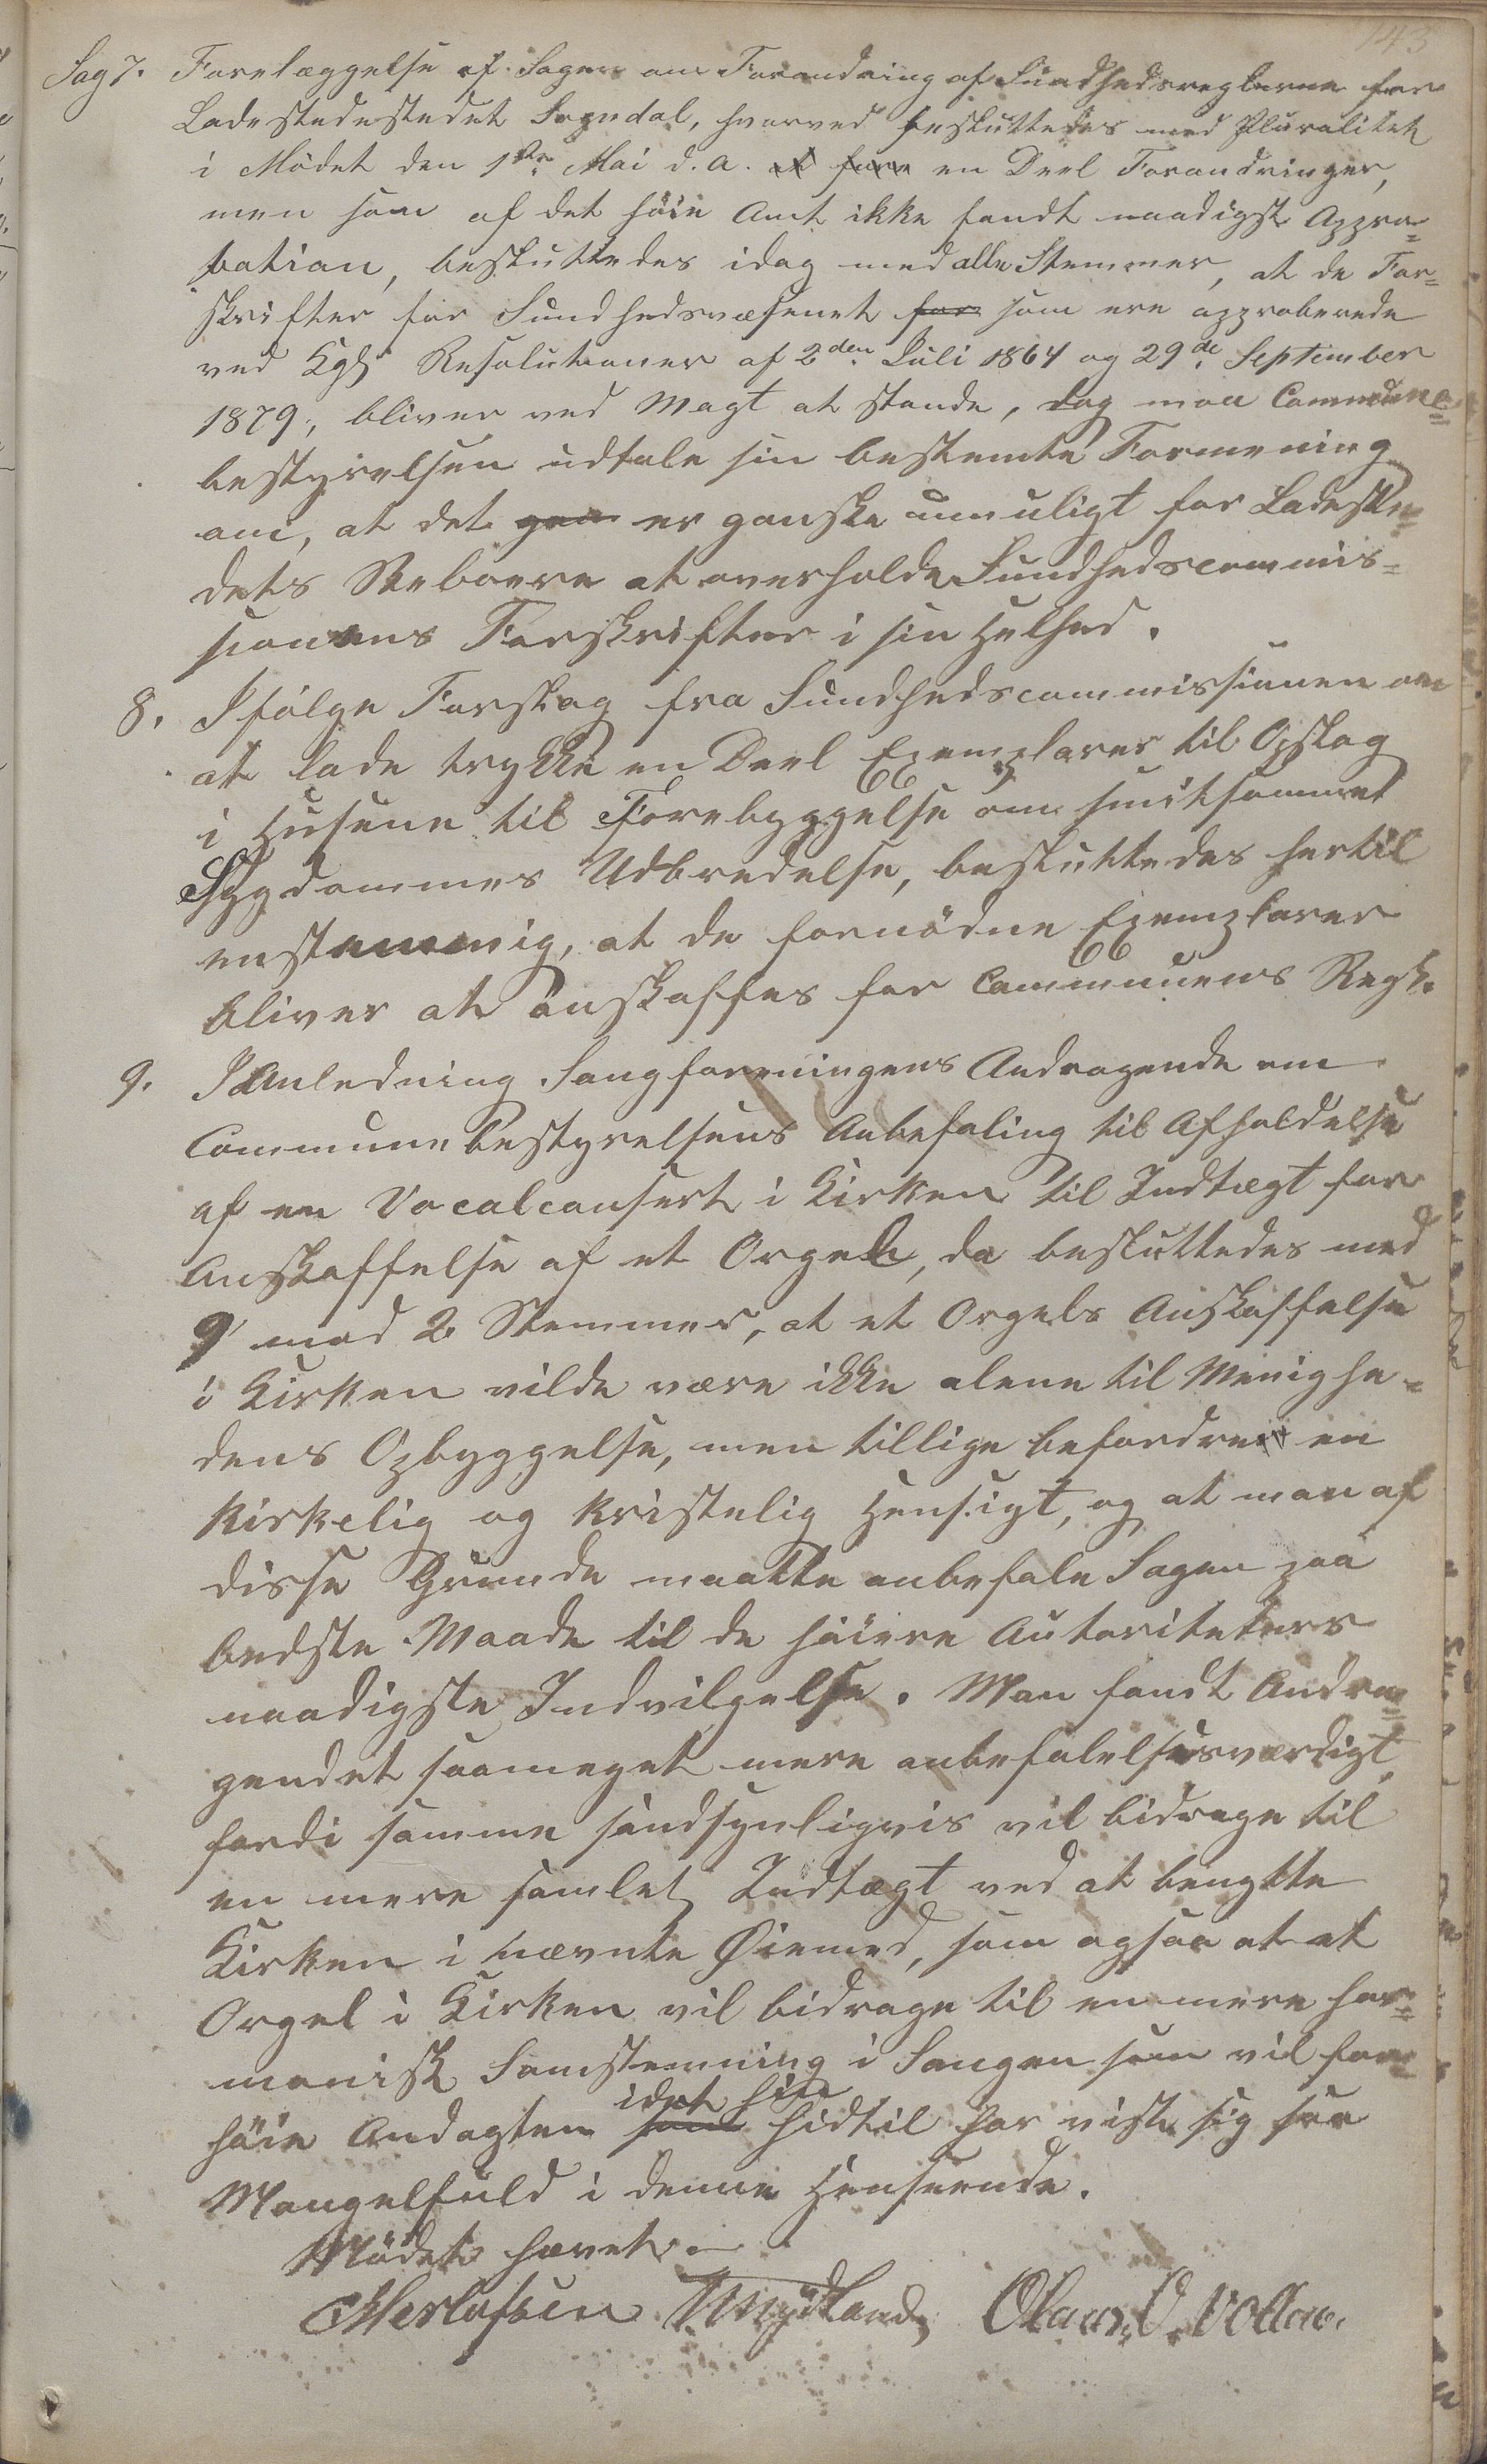 143
Sag 7. Forelæggelse af Sagen om Forandring af Sundhedsreglerne for
Ladestedestedet Sogndal, hvorved besluttedes med Pluralitet
i Mødet den 1ste Mai d. A. at fore en Deel Forandringer,
men som af det høie Amt ikke fandt naadigst Appro=
bation, besluttedes idag med alle Stemmer, at de For=
skrifter for Sundhedsvæsenet for som ere approberede
ved Kgl. Resolutioner af 2den Juli 1864 og 29de September
1879, bliver ved Magt at stande, dog maa Commune=
bestyrelsen udtale sin bestemte Formening
om, at det gan er ganske umuligt for Ladeste=
dets Beboere at overholde Sundhedscommis=
sionens Forskrifter i sin Helhed.
8. Ifølge Forslag fra Sundhedscommissionen om
at lade trykke en Deel Exemplarer til Opslag
i Husene til Forebyggelse om smitsommet
Sygdommes Udbredelse, besluttedes hertil
enstemmig, at de fornødne Exemplarer
bliver at anskaffes for Communens Regk.
9. I Anledning Sangforeningens Andragende om
Communebestyrelsens Anbefaling til Afholdelse
af en Vocalconsert i Kirken til Indtægt for
Anskaffelse af et Orgel, da besluttedes med
9 mod 2 Stemmer, at et Orgels Anskaffelse
i Kirken vilde være ikke alene til Menighe=
dens Opbyggelse, men tillige befordre en
kirkelig og kristelig Hensigt, og at man af
disse Grunde maatte anbefale Sagen paa
bedste Maade til de høiere Autoriteters
naadigste Indvilgelse. Man fandt Andra=
gendet saameget mere anbefalelsesværdigt,
fordi samme sandsynligvis vil bidrage til
en mere samlet Indtægt ved at benytte
Kirken i nævnte Øiemed, som ogsaa at et
Orgel i Kirken vil bidrage til en mere har=
monisk Samstemning i Sangen som vil for=
idet hin
høie Andagten som hidtil har vist sig saa
Mangelfuld i denne Henseende.
Mødet hævet. –
Herlofsen T Mydland Olaus O. Vollan.